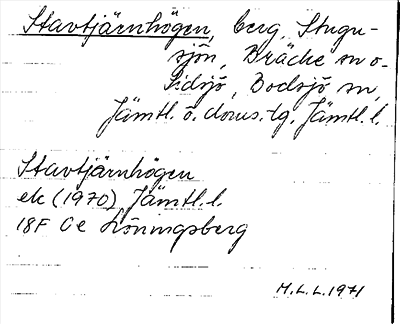 Stavtjärnhögen, berg, Stugu-
sjön, Bräcke sn o.
Sidsjö, Bodsjö sn,
Jämtl. ö. doms.lg, Jämtl. l.
Stavtjärnhögen
ek (1970) Jämtl. l.
18F Oe Löningsberg
M.L.L. 1971